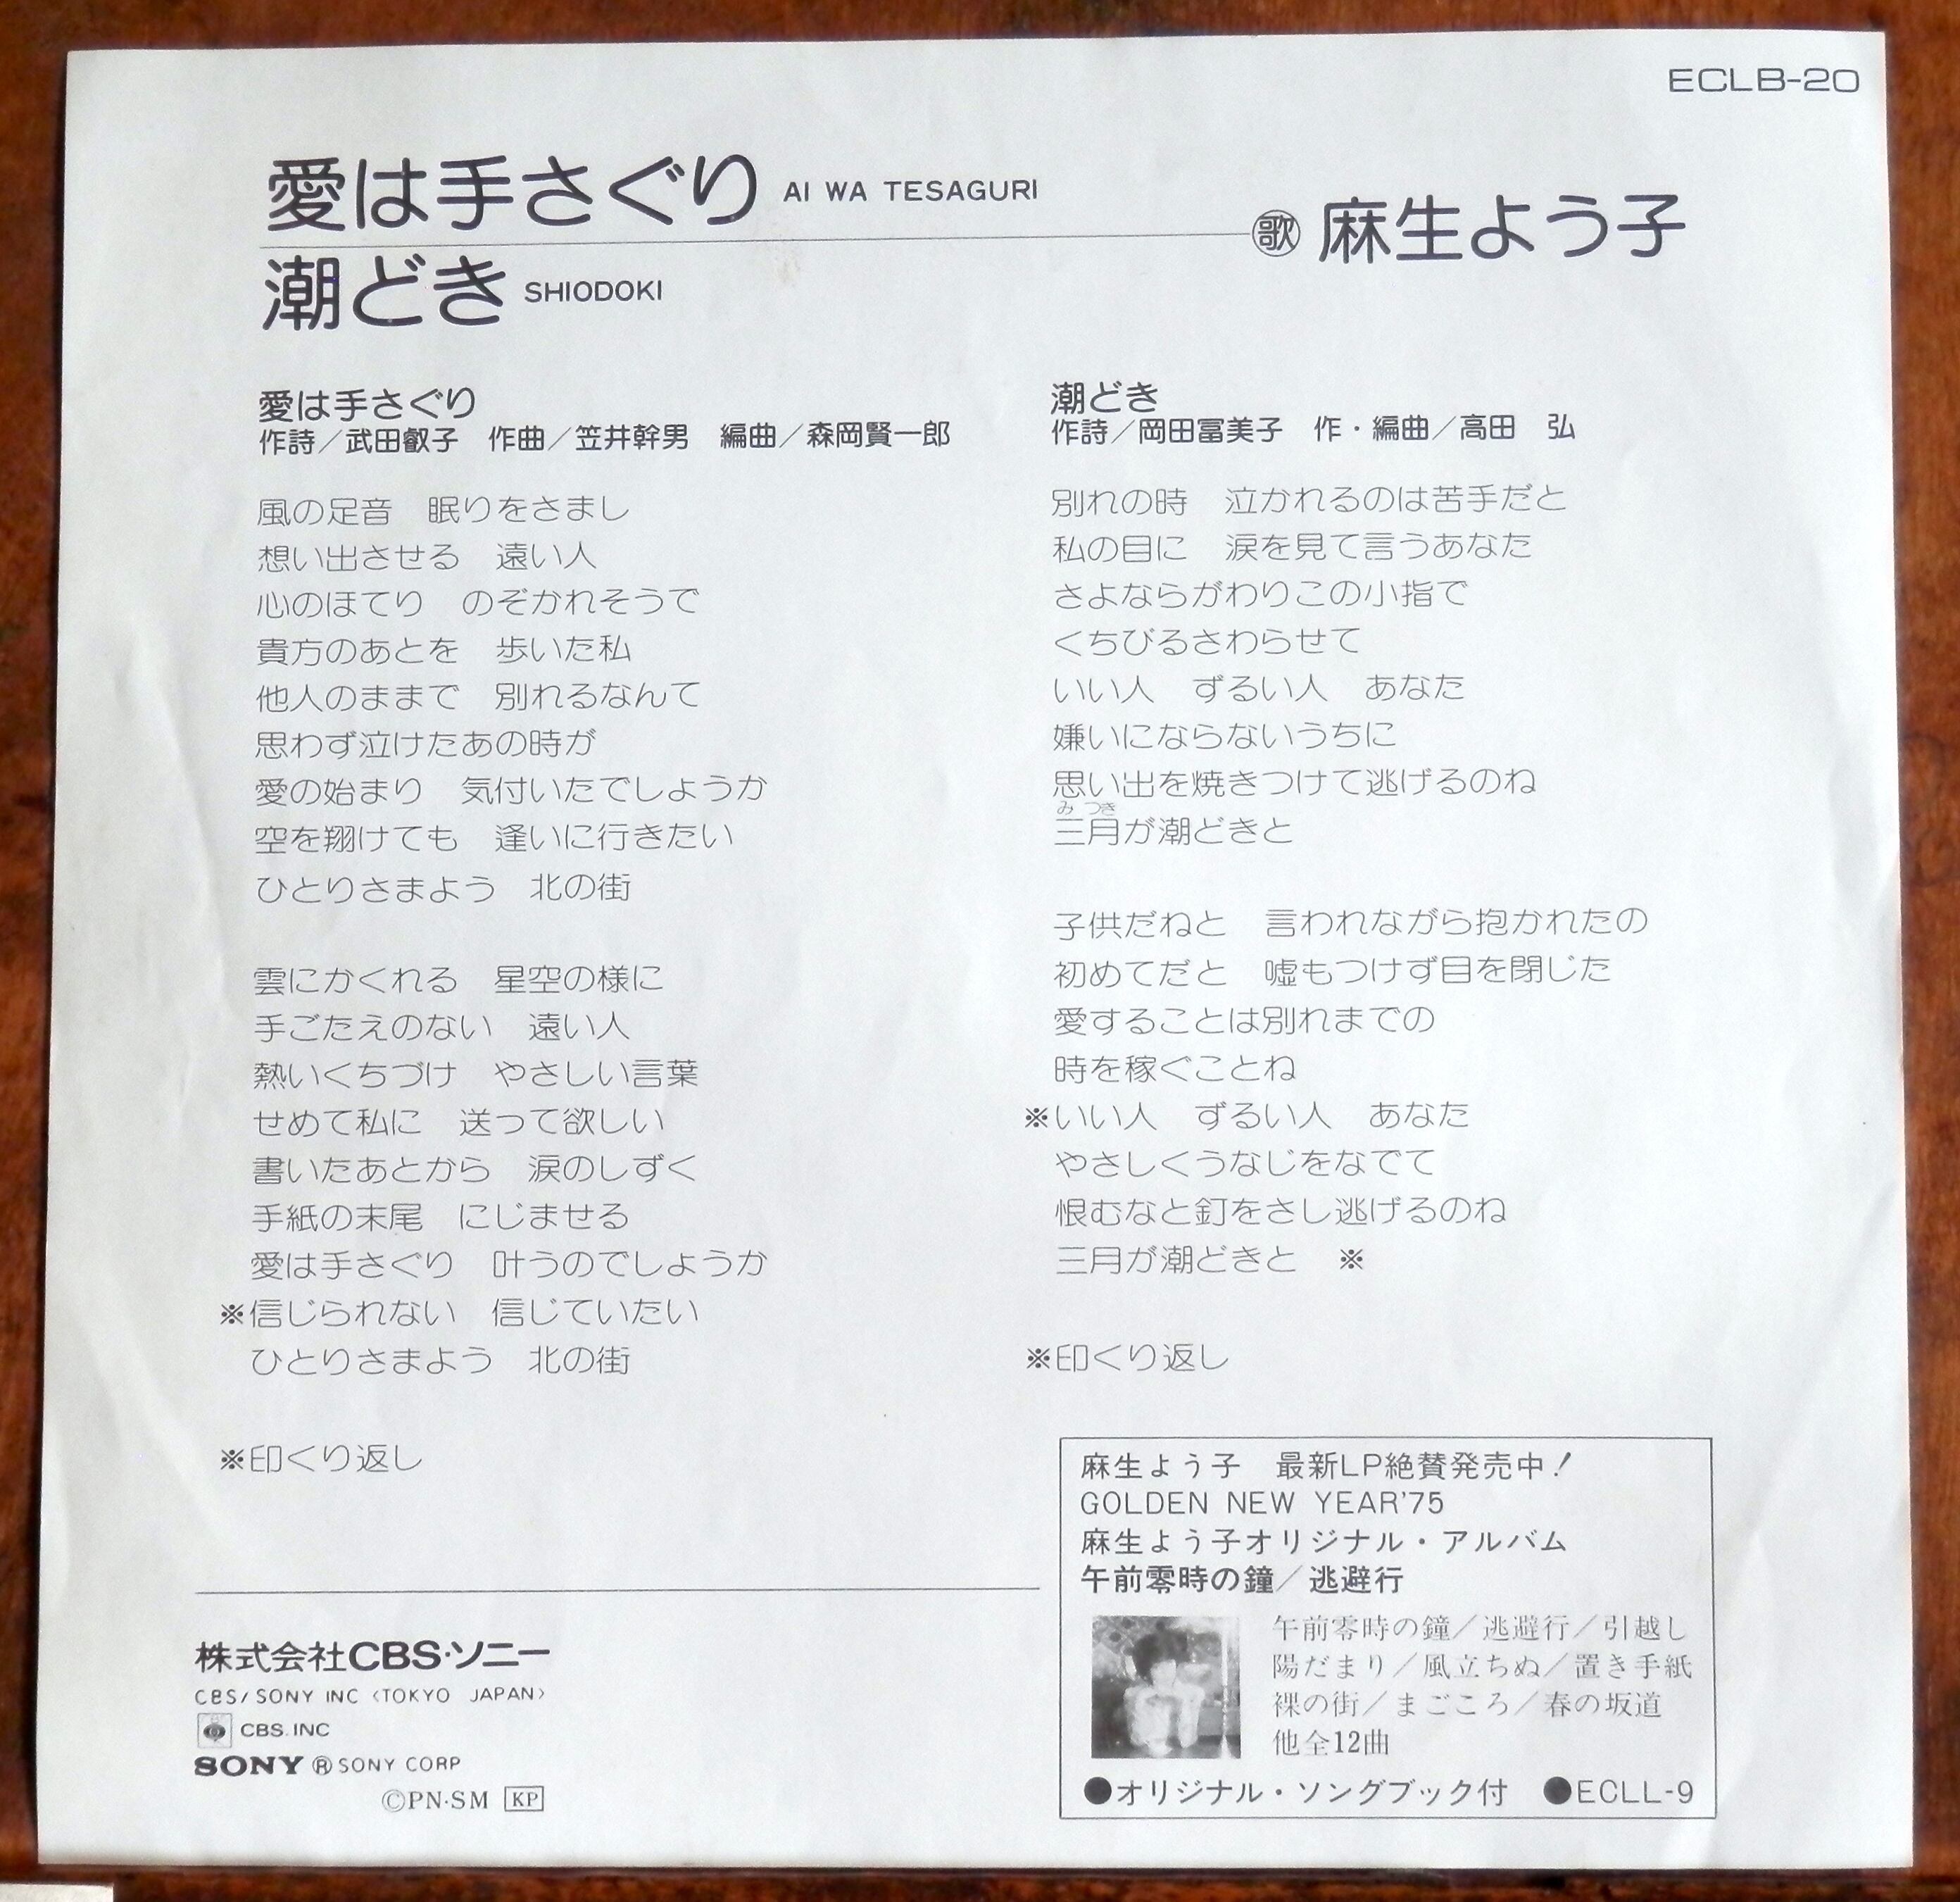 ECLB-20
愛は手さぐり AI WA TESAGURI
㊙歌 麻生よう子
潮どき SHIODOKI
愛は手さぐり
作詩／武田叡子　作曲／笠井幹男　編曲／森岡賢一郎
風の足音　眠りをさまし
想い出させる　遠い人
心のほてり　のぞかれそうで
貴方のあとを　歩いた私
他人のままで　別れるなんて
思わず泣けたあの時が
愛の始まり　気付いたでしようか
空を翔けても　逢いに行きたい
ひとりさまよう　北の街
雲にかくれる　星空の様に
手ごたえのない　遠い人
熱いくちづけ　やさしい言葉
せめて私に　送って欲しい
書いたあとから　涙のしずく
手紙の末尾　にじませる
愛は手さぐり　叶うのでしようか
※信じられない　信じていたい
ひとりさまよう　北の街
※印くり返し
潮どき
作詩／岡田冨美子　作・編曲／高田　弘
別れの時　泣かれるのは苦手だと
私の目に　涙を見て言うあなた
さよならがわりこの小指で
くちびるさわらせて
いい人　ずるい人　あなた
嫌いにならないうちに
思い出を焼きつけて逃げるのね
み つき
三月が潮どきと
子供だねと　言われながら抱かれたの
初めてだと　嘘もつけず目を閉じた
愛することは別れまでの
時を稼ぐことね
※いい人　ずるい人　あなた
やさしくうなじをなでて
恨むなと釘をさし逃げるのね
三月が潮どきと　※
※印くり返し
麻生よう子　最新LP絶賛発売中！
GOLDEN NEW YEAR'75
麻生よう子オリジナル・アルバム
午前零時の鐘／逃避行
午前零時の鐘／逃避行／引越し
陽だまり／風立ちぬ／置き手紙
裸の街／まごころ／春の坂道
他全12曲
●オリジナル・ソングブック付　●ECLL-9
株式会社CBS・ソニー
CBS/SONY INC〈TOKYO JAPAN〉
CBS. INC
SONY ®SONY CORP
©PN·SM KP